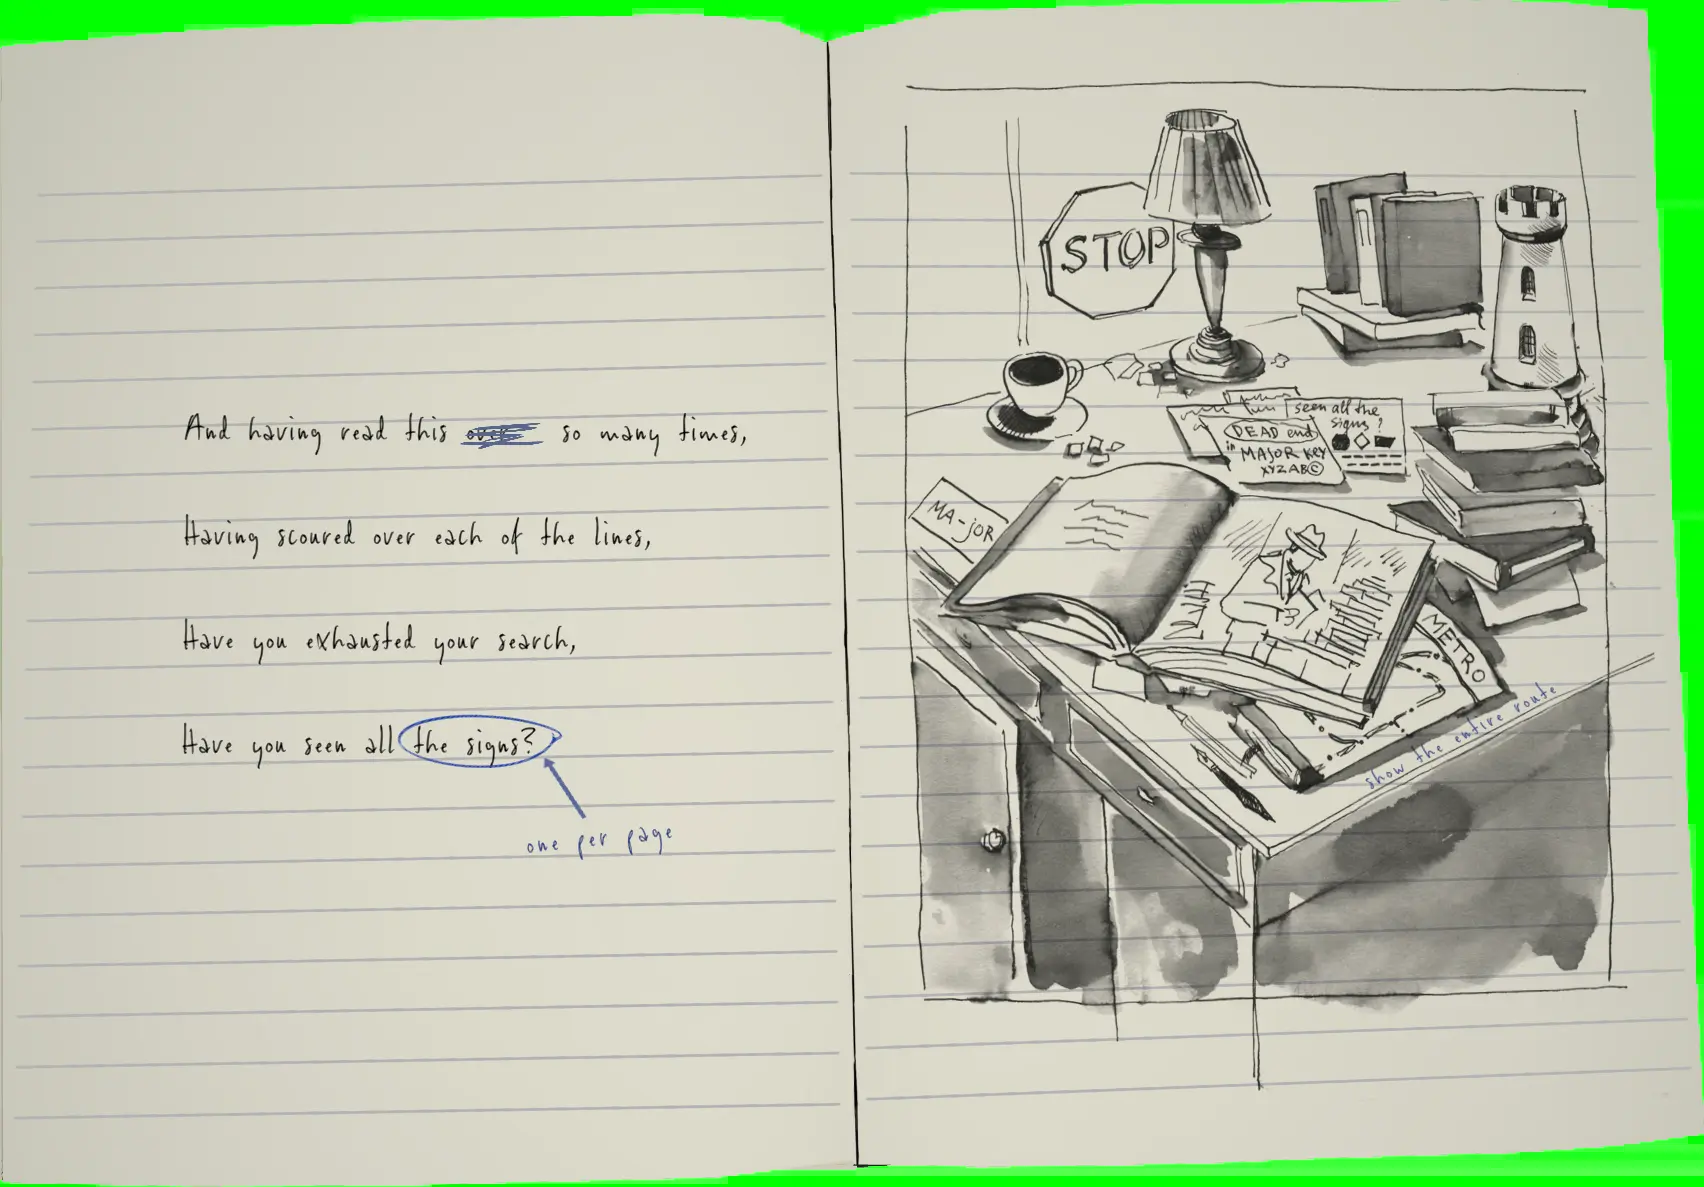 And having read this so many times,
Having scoured over each of the lines,
Have you exhausted your search,
Have you seen all the signs?
one per page
STOP
seen all the
signs?
DEAD end
in
MAJOR KEY
XYZABC
MA-JOR
METRO
show the entire route